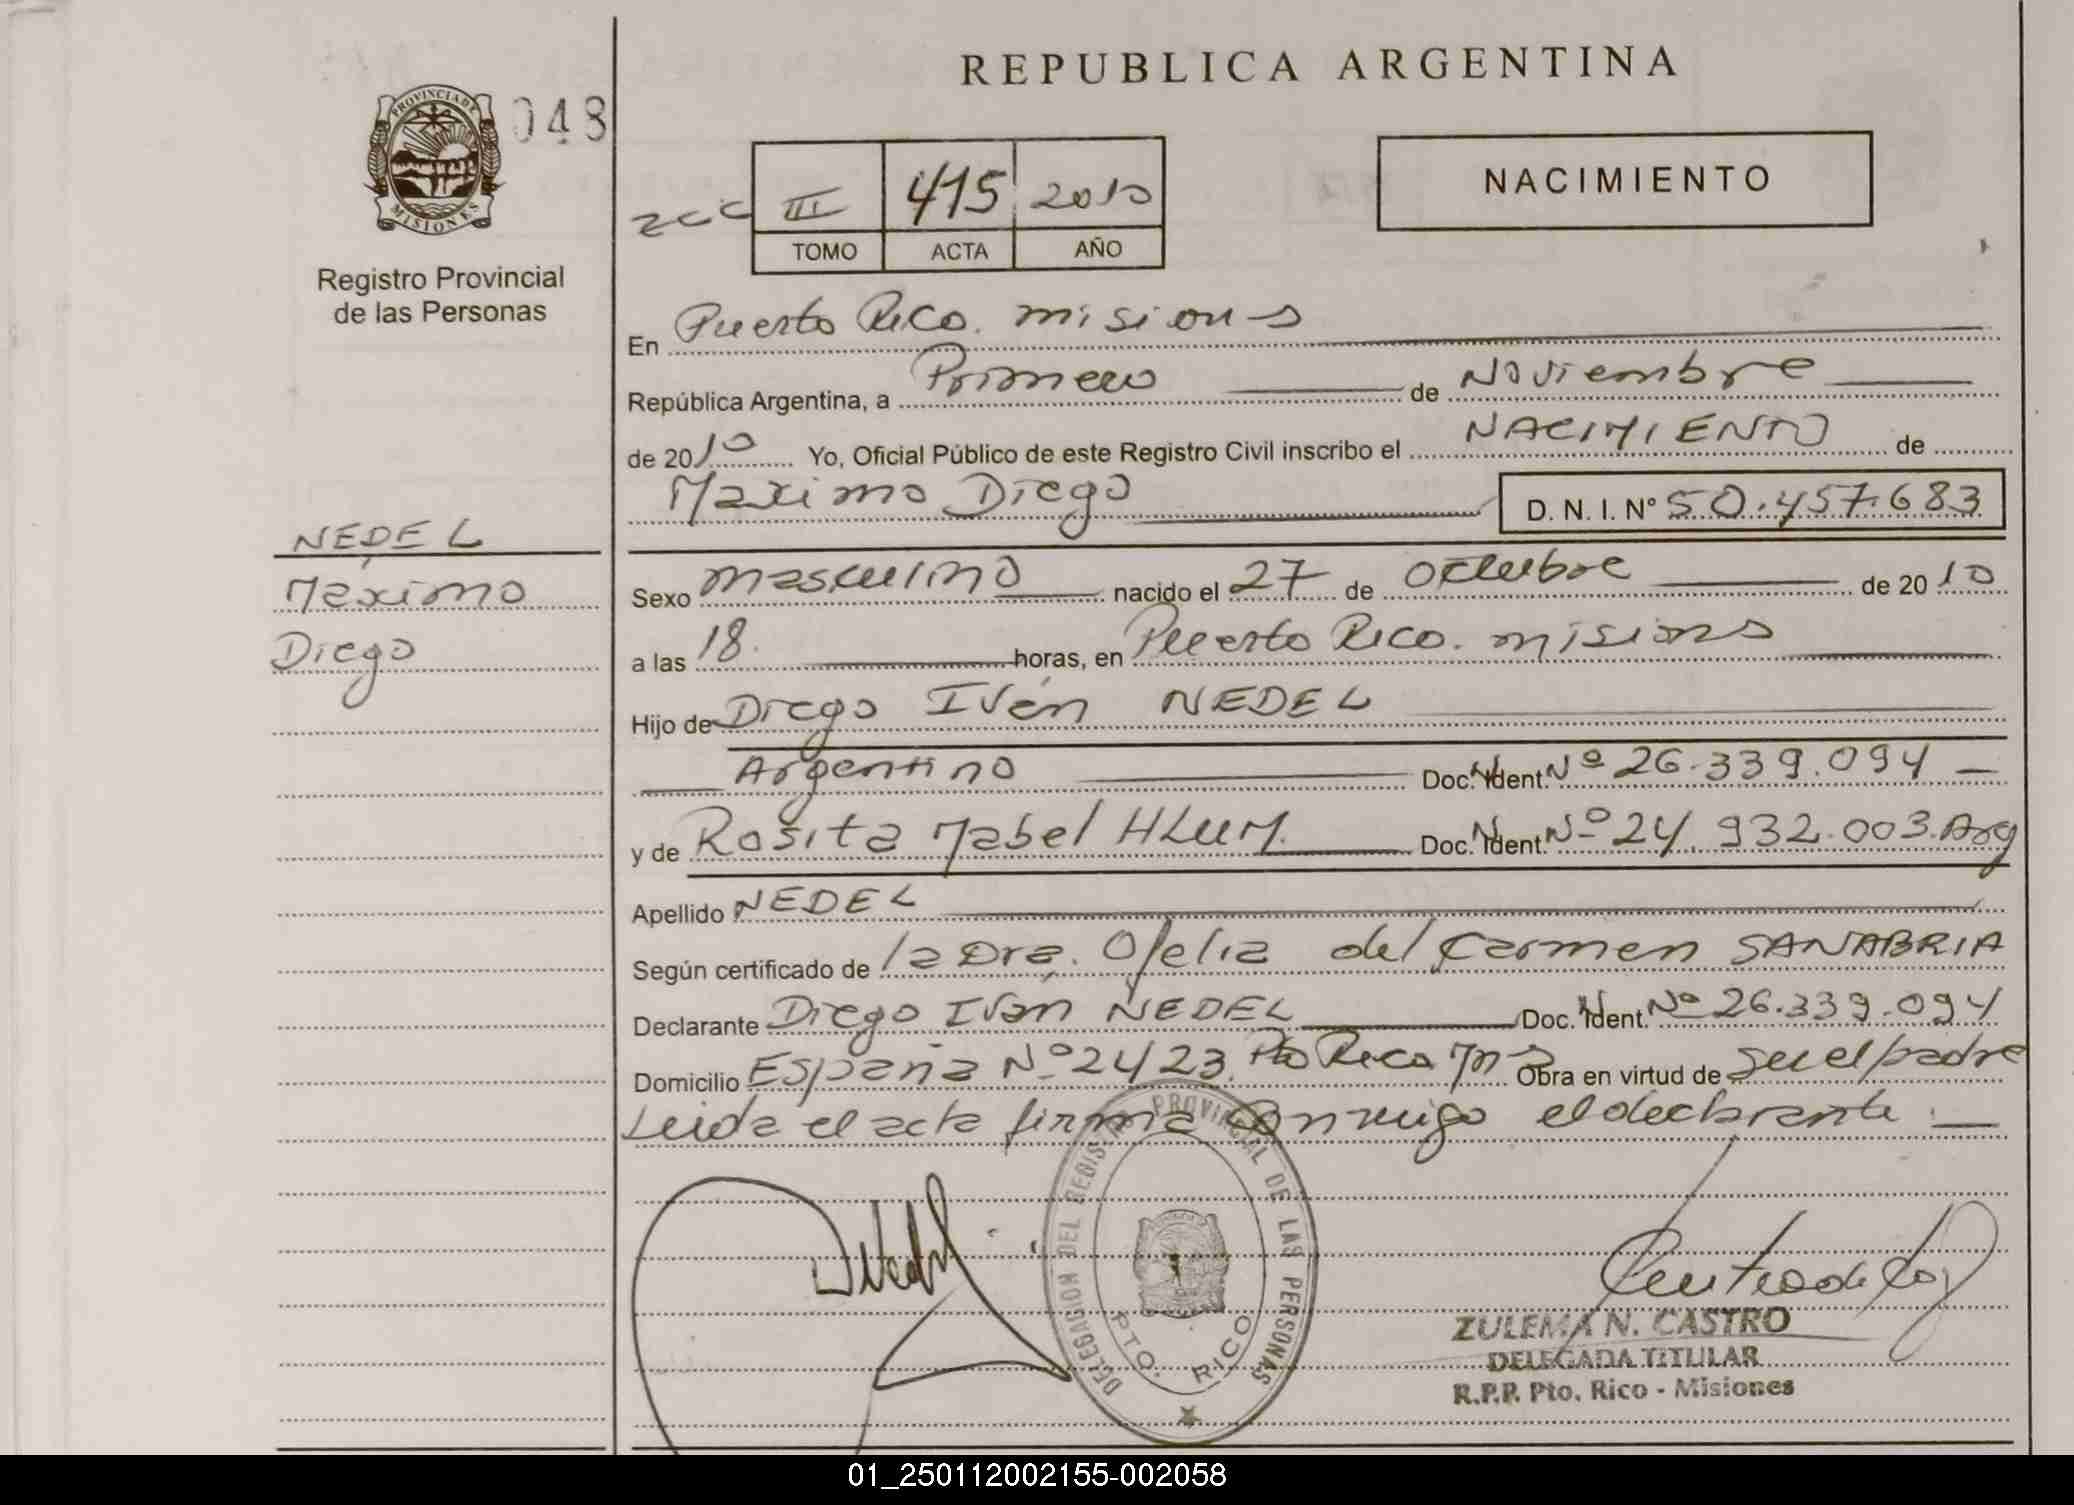 REPUBLICA ARGENTINA
PROVINCIA DE MISIONES
048
Registro Provincial
de las Personas
NACIMIENTO
III 415 2010
TOMO ACTA AÑO
En Puerto Rico. misiones
República Argentina, a Primero de Noviembre
de 2010 Yo, Oficial Público de este Registro Civil inscribo el NACIMIENTO de
Maximo Diego D. N. I. N° 50.457.683
NEDEL
Maximo
Diego
Sexo masculino nacido el 27 de octubre de 2010
a las 18. horas, en Puerto Rico. misiones
Hijo de Diego Iván NEDEL
Argentino Doc. Ident. Nº 26.339.094
y de Rosita Mabel HLUM. Doc. Ident. Nº 24.932.003. Arg
Apellido NEDEL
Según certificado de la Dra. Ofelia del Carmen SANABRIA
Declarante Diego Iván NEDEL Doc. Ident. Nº 26.339.094
Domicilio España Nº 2423. Pto Rico Mns Obra en virtud de ser el padre
Leida el acta firma conmigo el declarante.
DELEGACION DEL REGISTRO PROVINCIAL DE LAS PERSONAS
PTO. RICO
ZULEMA N. CASTRO
DELEGADA TITULAR
R.P.P. Pto. Rico - Misiones
01_250112002155-002058